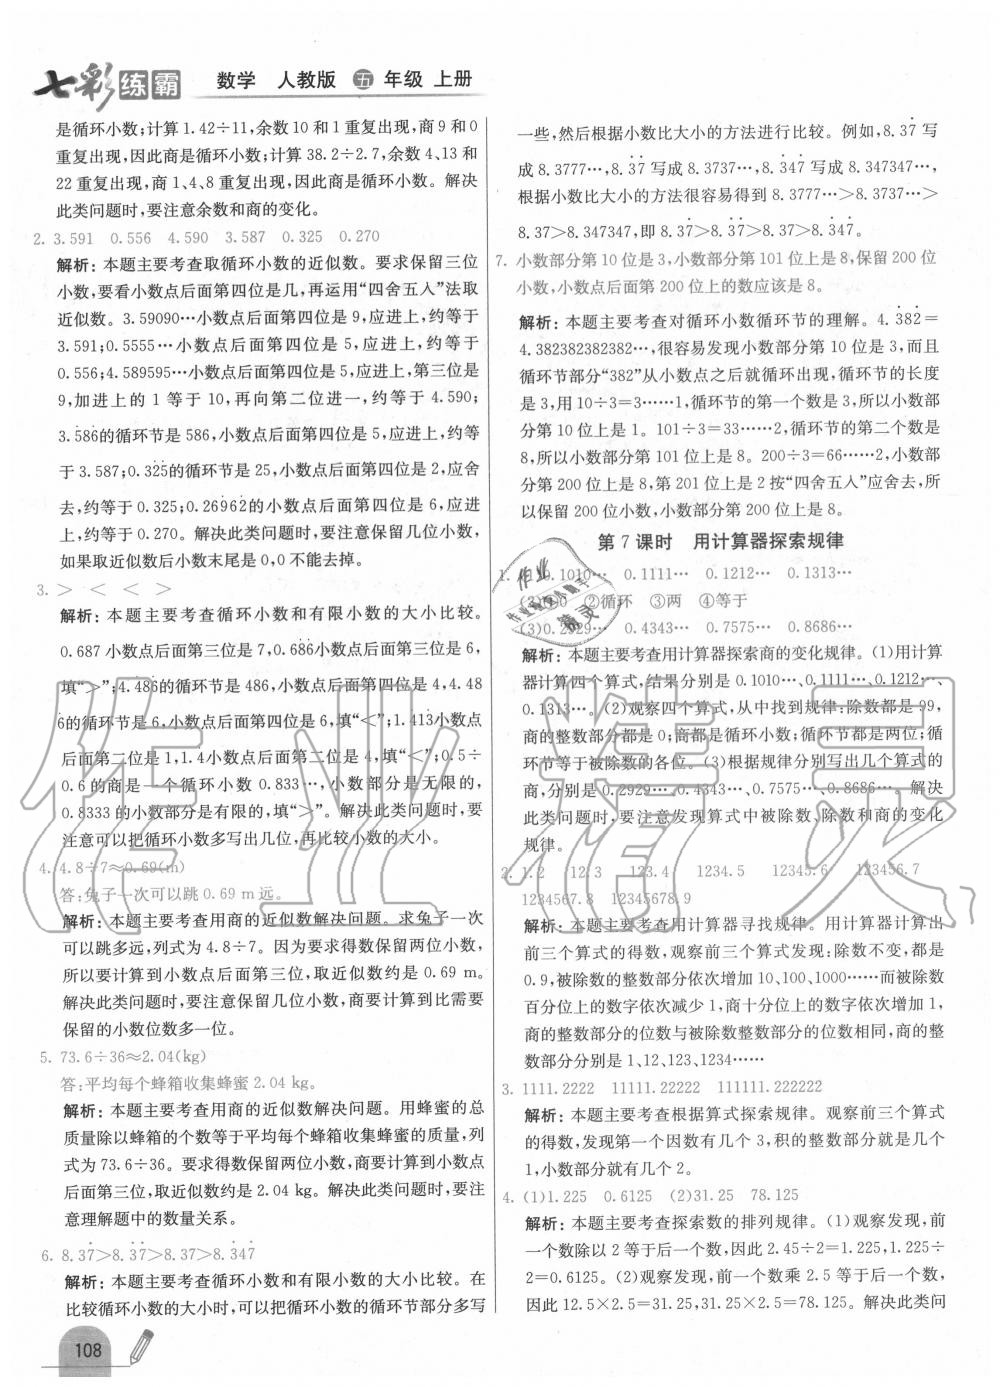 七彩练霸 数学 人教版 五 年级 上册
是循环小数;计算1.42÷11,余数10和1重复出现,商9和0
重复出现,因此商是循环小数;计算38.2÷2.7,余数4、13和
22重复出现,商1、4、8重复出现,因此商是循环小数。解决
此类问题时,要注意余数和商的变化。
2. 3.591 0.556 4.590 3.587 0.325 0.270
解析:本题主要考查取循环小数的近似数。要求保留三位
小数,要看小数点后面第四位是几,再运用“四舍五入”法取
近似数。3.59090…小数点后面第四位是9,应进上,约等于
3.591;0.5555…小数点后面第四位是5,应进上,约等于
0.556;4.589595…小数点后面第四位是5,应进上,第三位是
9,加进上的1等于10,再向第二位进一,约等于4.590;
3.5̇86̇的循环节是586,小数点后面第四位是5,应进上,约等
于3.587;0.32̇5̇的循环节是25,小数点后面第四位是2,应舍
去,约等于0.325;0.26̇962̇小数点后面第四位是6,应进
上,约等于0.270。解决此类问题时,要注意保留几位小数,
如果取近似数后小数末尾是0,0不能去掉。
3. > < < >
解析:本题主要考查循环小数和有限小数的大小比较。
0.687小数点后面第三位是7,0.68̇6̇小数点后面第三位是6,
填“>”;4.4̇86̇的循环节是486,小数点后面第四位是4,4.48
6̇的循环节是6,小数点后面第四位是6,填“<”;1.4̇13̇小数点
后面第二位是1,1.4̇小数点后面第二位是4,填“<”;0.5÷
0.6的商是一个循环小数0.833…,小数部分是无限的,
0.8333的小数部分是有限的,填“>”。解决此类问题时,要
注意可以把循环小数多写出几位,再比较小数的大小。
4. 4.8÷7≈0.69(m)
答:兔子一次可以跳0.69 m远。
解析:本题主要考查用商的近似数解决问题。求兔子一次
可以跳多远,列式为4.8÷7。因为要求得数保留两位小数,
所以要计算到小数点后面第三位,取近似数约是0.69 m。
解决此类问题时,要注意保留几位小数,商要计算到比需要
保留的小数位数多一位。
5. 73.6÷36≈2.04(kg)
答:平均每个蜂箱收集蜂蜜2.04 kg。
解析:本题主要考查用商的近似数解决问题。用蜂蜜的总
质量除以蜂箱的个数等于平均每个蜂箱收集蜂蜜的质量,列
式为73.6÷36。要求得数保留两位小数,商要计算到小数点
后面第三位,取近似数约是2.04 kg。解决此类问题时,要注
意理解题中的数量关系。
6. 8.37̇>8.3̇7̇>8.37>8.3̇47̇
解析:本题主要考查循环小数和有限小数的大小比较。在
比较循环小数的大小时,可以把循环小数的循环节部分多写
108
一些,然后根据小数比大小的方法进行比较。例如,8.37̇写
成8.3777…,8.3̇7̇写成8.3737…,8.3̇47̇写成8.347347…,
根据小数比大小的方法很容易得到8.3777…>8.3737…>
8.37>8.347347,即8.37̇>8.3̇7̇>8.37>8.3̇47̇。
7. 小数部分第10位是3,小数部分第101位上是8,保留200位
小数,小数点后面第200位上的数应该是8。
解析:本题主要考查对循环小数循环节的理解。4.3̇82̇=
4.382382382382…,很容易发现小数部分第10位是3,而且
循环节部分“382”从小数点之后就循环出现,循环节的长度
是3,用10÷3=3……1,循环节的第一个数是3,所以小数部
分第10位上是1。101÷3=33……2,循环节的第二个数是
8,所以小数部分第101位上是8。200÷3=66……2,所以小
数部分第200位上是8,第201位上是2按“四舍五入”应舍去,所
以保留200位小数,小数部分第200位上是8。
第7课时 用计算器探索规律
1. 0.1010… 0.1111… 0.1212… 0.1313…
0 ②循环 ③两 ④等于
(3)0.2929… 0.4343… 0.7575… 0.8686…
解析:本题主要考查用计算器探索商的变化规律。(1)用计算
器计算四个算式,结果分别是0.1010…、0.1111…、0.1212…、
0.1313…。(2)观察四个算式,从中找到规律:除数都是99,
商的整数部分都是0;商都是循环小数;循环节都是两位;循
环节等于被除数的各位。(3)根据规律分别写出几个算式的
商,分别是0.2929…、0.4343…、0.7575…、0.8686…。解决
此类问题时,要注意发现算式中被除数、除数和商的变化
规律。
2. 1.2 12.3 123.4 1234.5 12345.6 123456.7
1234567.8 12345678.9
解析:本题主要考查用计算器寻找规律。用计算器计算出
前三个算式的得数,观察前三个算式发现:除数不变,都是
0.9,被除数的整数部分依次增加10、100、1000……而被除数
百分位上的数字依次减少1,商十分位上的数字依次增加1,
商的整数部分的位数与被除数整数部分的位数相同,商的整
数部分分别是1、12、123、1234……
3. 1111.2222 11111.22222 111111.222222
解析:本题主要考查根据算式探索规律。观察前三个算式
的得数,发现第一个因数有几个3,积的整数部分就是几个
1,小数部分就有几个2。
4. (1)1.225 0.6125 (2)31.25 78.125
解析:本题主要考查探索数的排列规律。(1)观察发现,前
一个数除以2等于后一个数,因此2.45÷2=1.225,1.225÷
2=0.6125。(2)观察发现,前一个数乘2.5等于后一个数,
因此12.5×2.5=31.25,31.25×2.5=78.125。解决此类问
作业精灵